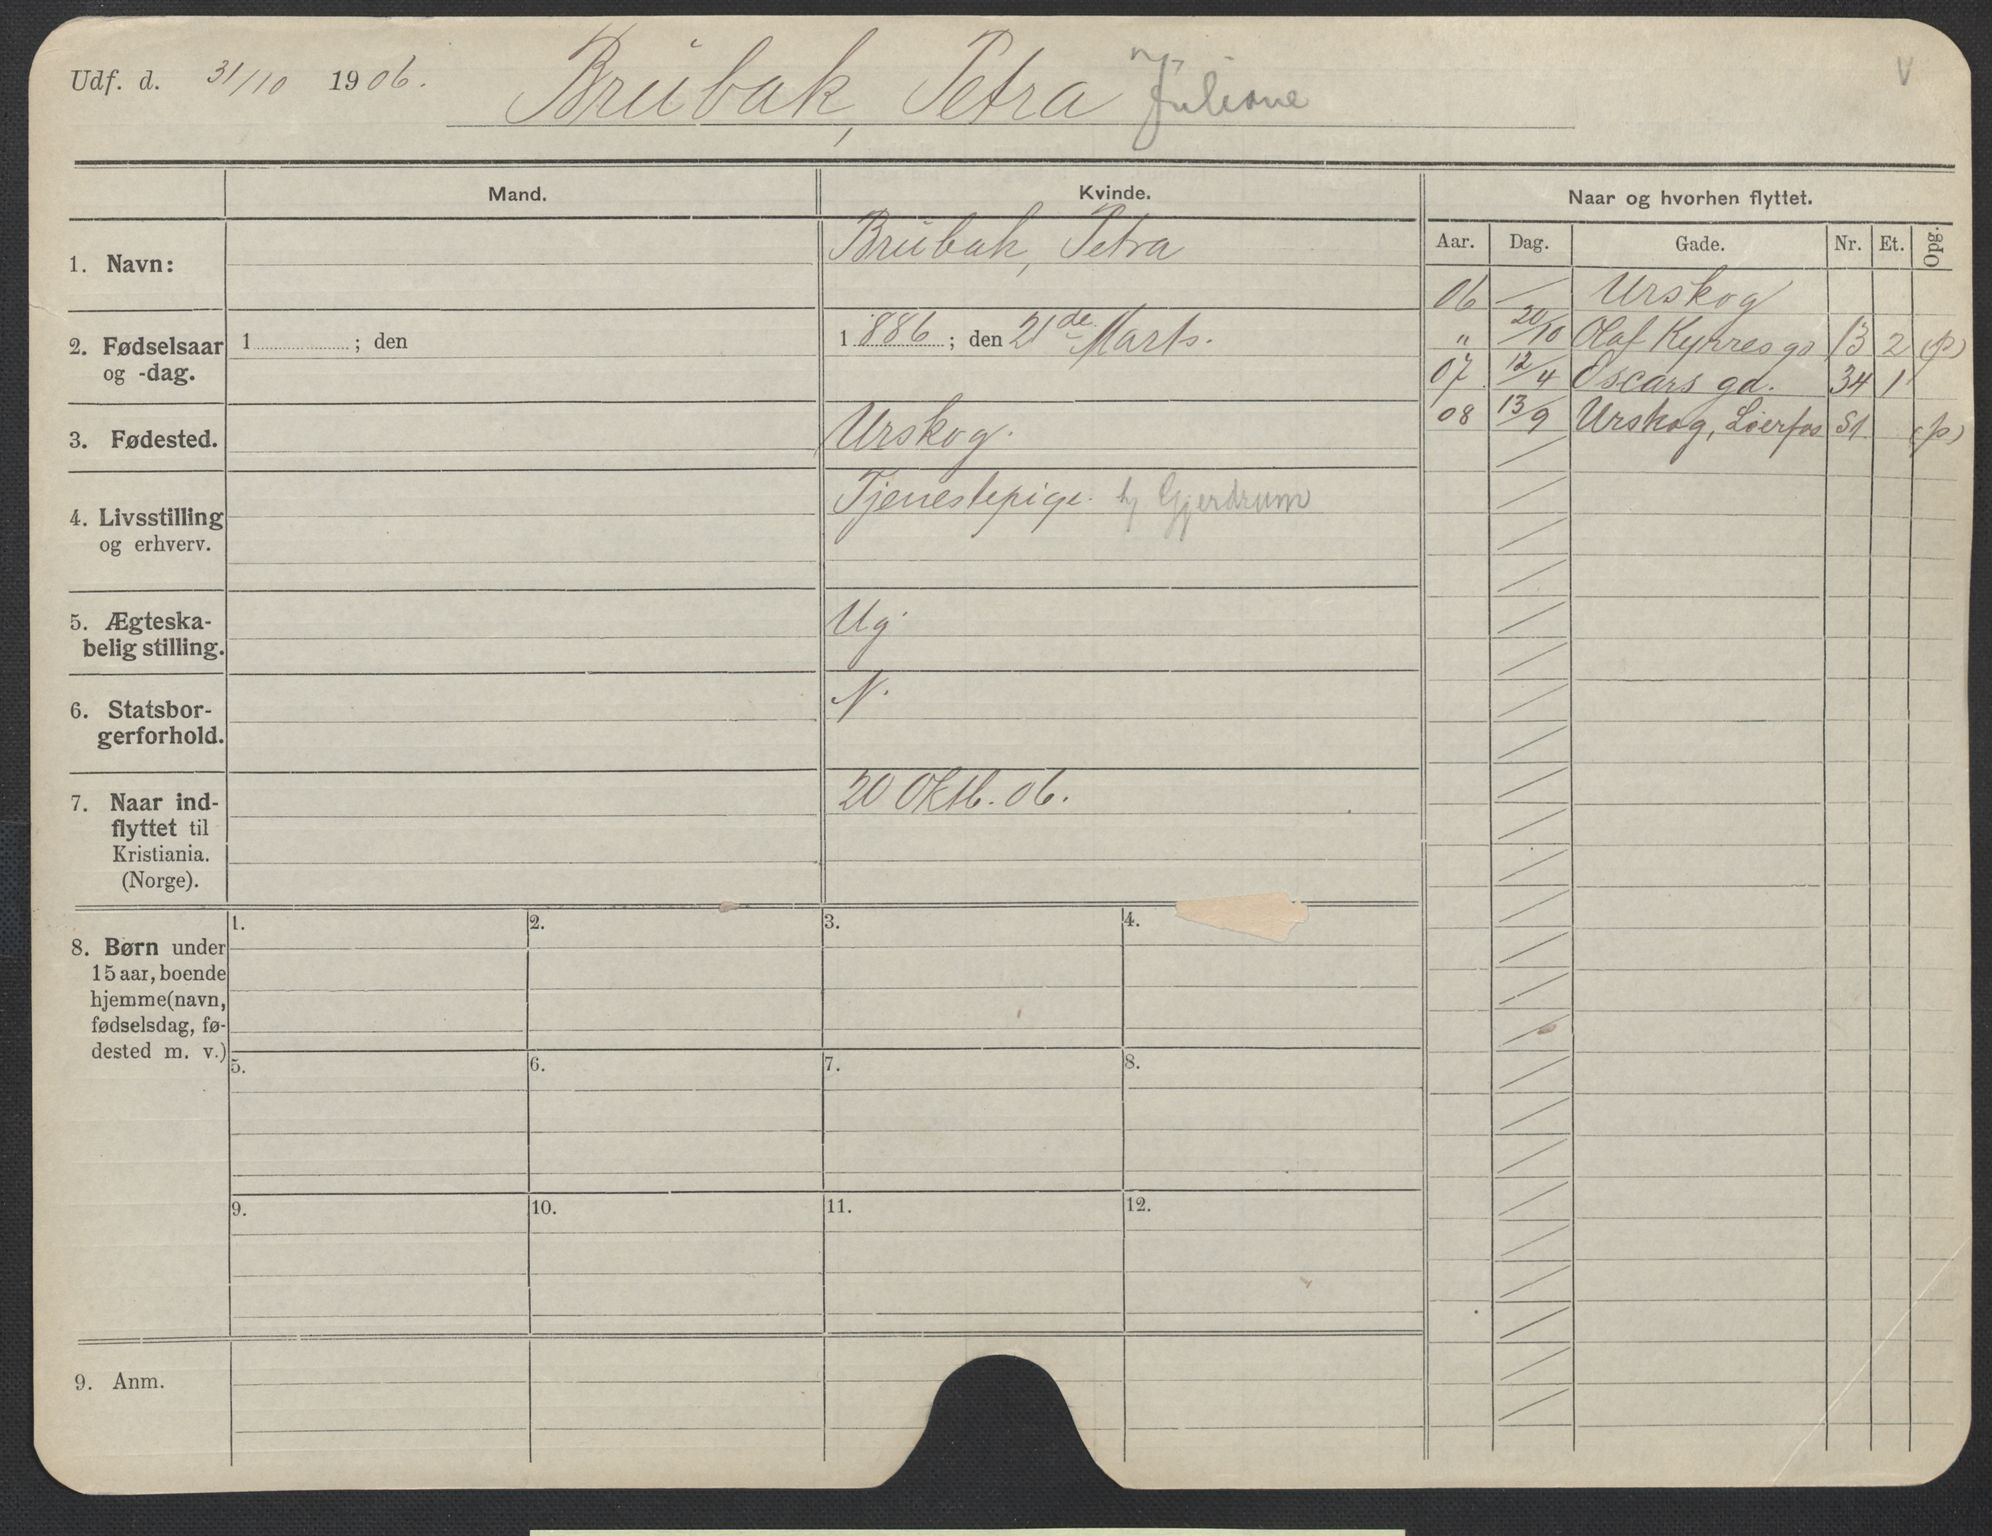 Udf. d. 31/10 1906. Brübak, Petra Juliane V
Mand. Kvinde. Naar og hvorhen flyttet.
Aar. Dag. Gade. Nr. Et. Opg.
1. Navn: Brübak, Petra
06 Urskog
" 20/10 Olaf Kyrres gd 13 2 (p)
07 12/4 Oscars gd. 34 1
08 13/9 Urskog, Lierfos St. (p)
2. Fødselsaar og -dag.
1 ; den
1 886 ; den 21de Marts.
3. Fødested. Urskog.
4. Livsstilling og erhverv.
Tjenestepige. hj Gjerdrum
5. Ægteska-
belig stilling.
Ug.
6. Statsbor-
gerforhold.
N.
7. Naar ind-
flyttet til
Kristiania.
(Norge).
20 Oktb. 06.
8. Børn under
15 aar, boende
hjemme (navn,
fødselsdag, fø-
dested m. v.)
1. 2. 3. 4.
5. 6. 7. 8.
9. 10. 11. 12.
9. Anm.